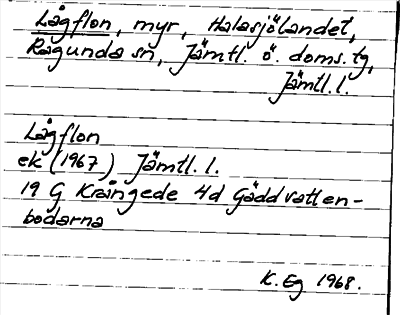 Lågflon, myr, Halasjölandet,
Ragunda sn, Jämtl. ö. doms. tg,
Jämtl. l.
Lågflon
ek (1967) Jämtl. l.
19 G Krångede 4d Gäddvatten-
bodarna
K. Eg 1968.